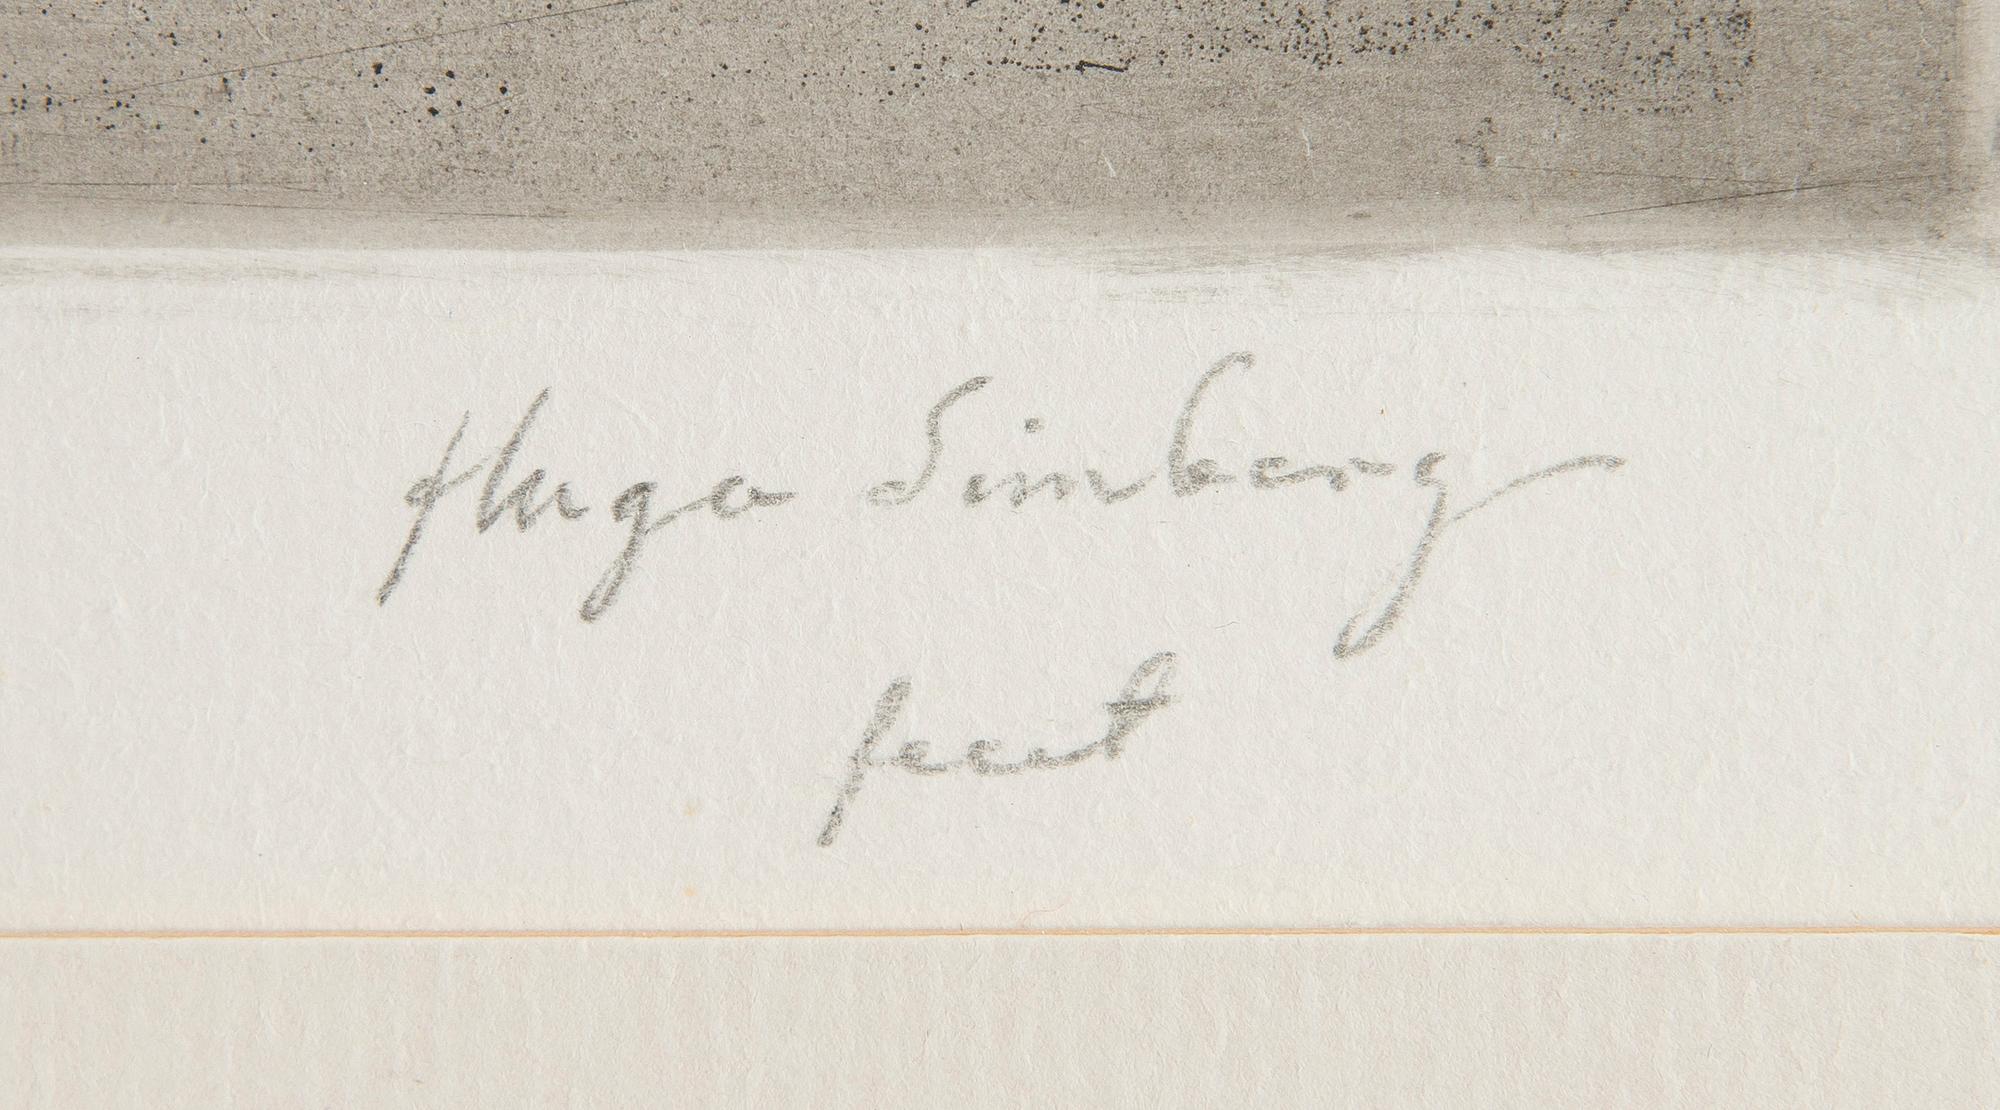 Hugo Simberg
fecit